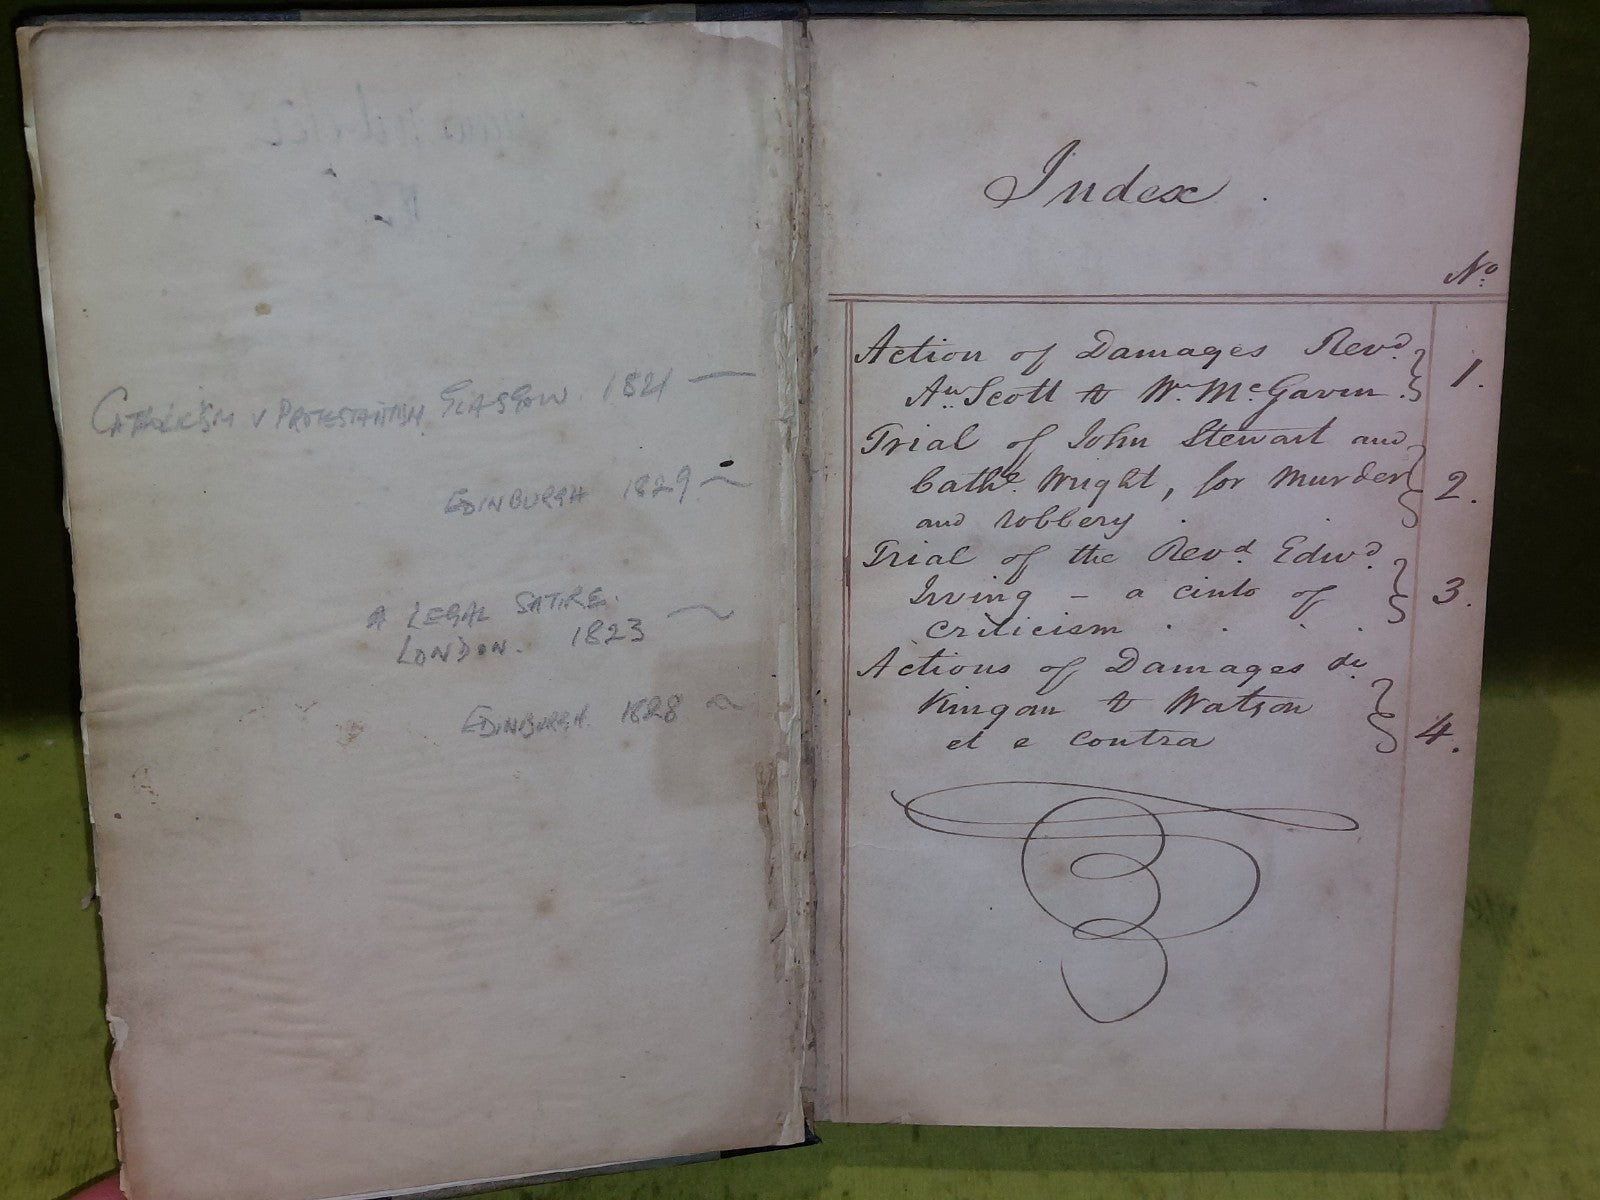 CATHOLICISM V PROTESTANTISM. GLASGOW. 1821
EDINBURGH 1829
A LEGAL SATIRE.
LONDON. 1823
EDINBURGH. 1828
Index.
No.
Action of Damages Revd.
Aw. Scott to Wm. McGavin. 1.
Trial of John Stewart and
Cathe. Wright, for Murder 2.
and robbery.
Trial of the Revd. Edwd.
Irving – a cento of 3.
criticism
Actions of Damages
Kingan to Watson
et e contra 4.